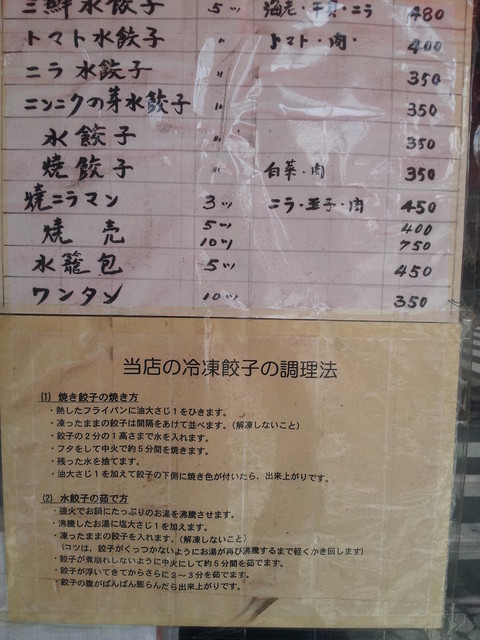 三鮮水餃子 5ツ 海老・干貝・ニラ 480
トマト水餃子 〃 トマト・肉・ 400
ニラ水餃子 〃 350
ニンニクの芽水餃子 〃 350
水餃子 〃 350
焼餃子 〃 白菜・肉 350
焼ニラマン 3ツ ニラ・玉子・肉 450
焼売 5ツ 400
10ツ 750
水籠包 5ツ 450
ワンタン 10ツ 350
当店の冷凍餃子の調理法
(1) 焼き餃子の焼き方
・熱したフライパンに油大さじ1をひきます。
・凍ったままの餃子は間隔をあけて並べます。(解凍しないこと)
・餃子の2分の1高さまで水を入れます。
・フタをして中火で約5分間を焼きます。
・残った水を捨てます。
・油大さじ1を加えて餃子の下側に焼き色が付いたら、出来上がりです。
(2) 水餃子の茹で方
・強火でお鍋にたっぷりのお湯を沸騰させます。
・沸騰したお湯に塩大さじ1を加えます。
・凍ったままの餃子を入れます。(解凍しないこと)
(コツは、餃子がくっつかないようにお湯が再び沸騰するまで軽くかき回します)
・餃子が煮崩れしないように中火にして約5分間を茹でます。
・餃子が浮いてきてからさらに2～3分を茹でます。
・餃子の腹がぱんぱん膨らんだら出来上がりです。